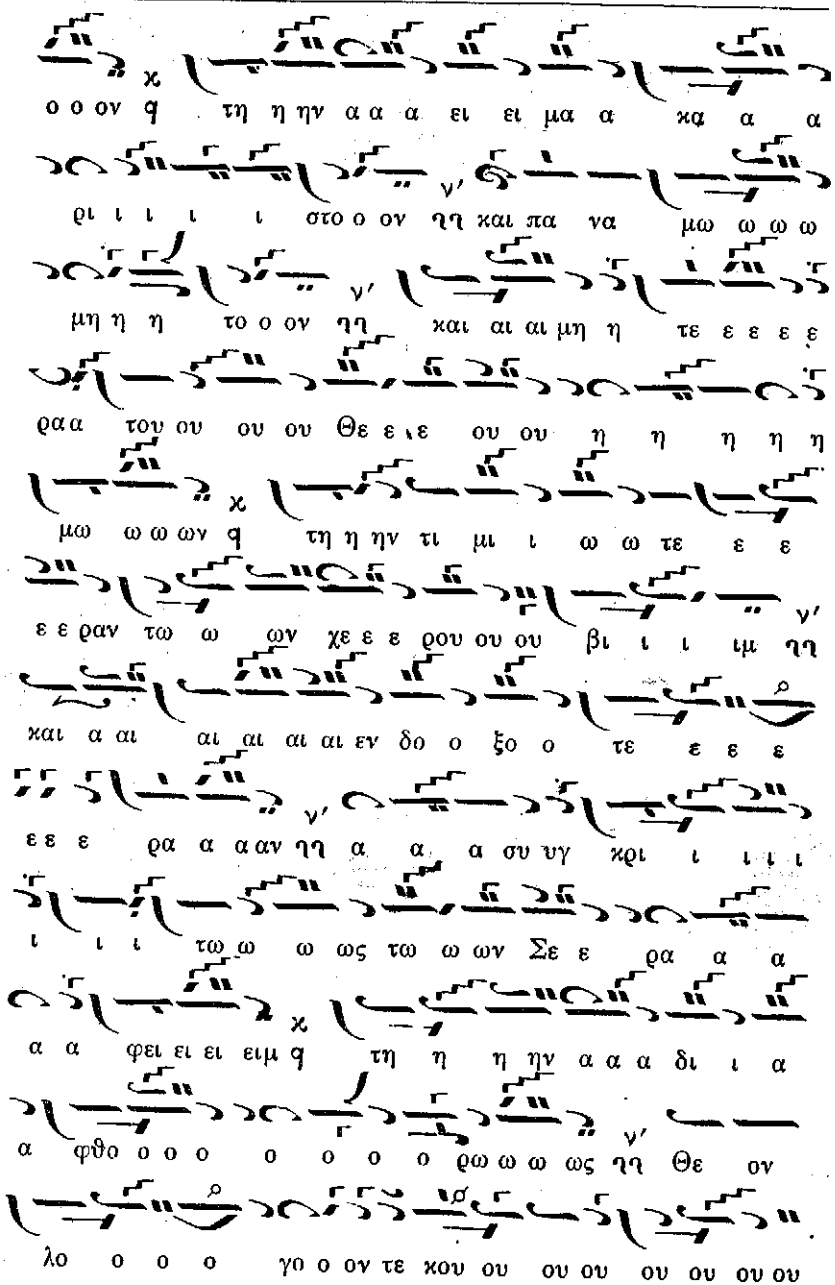 ο ο ον ϥ τη η ην α α α ει ει μα α κα α α
ρι ι ι ι ι στο ο ον ηη και πα να μω ω ω ω
μη η η το ο ον ηη και αι αι μη η τε ε ε ε ε
ρα α του ου ου ου Θε ε ε ε ου ου η η η η η
μω ω ω ων ϥ τη η ην τι μι ι ω ω τε ε ε
ε ε ραν τω ω ων χε ε ε ρου ου ου βι ι ι ιμ ηη
και α αι αι αι αι αι εν δο ο ξο ο τε ε ε ε
ε ε ε ρα α α αν ηη α α α συ υγ κρι ι ι ι ι
ι ι ι τω ω ω ως τω ω ων Σε ε ρα α α
α α φει ει ει ειμ ϥ τη η η ην α α α δι ι α
α φθο ο ο ο ο ο ο ο ρω ω ω ως ηη Θε ον
λο ο ο ο γο ο ον τε κου ου ου ου ου ου ου ου